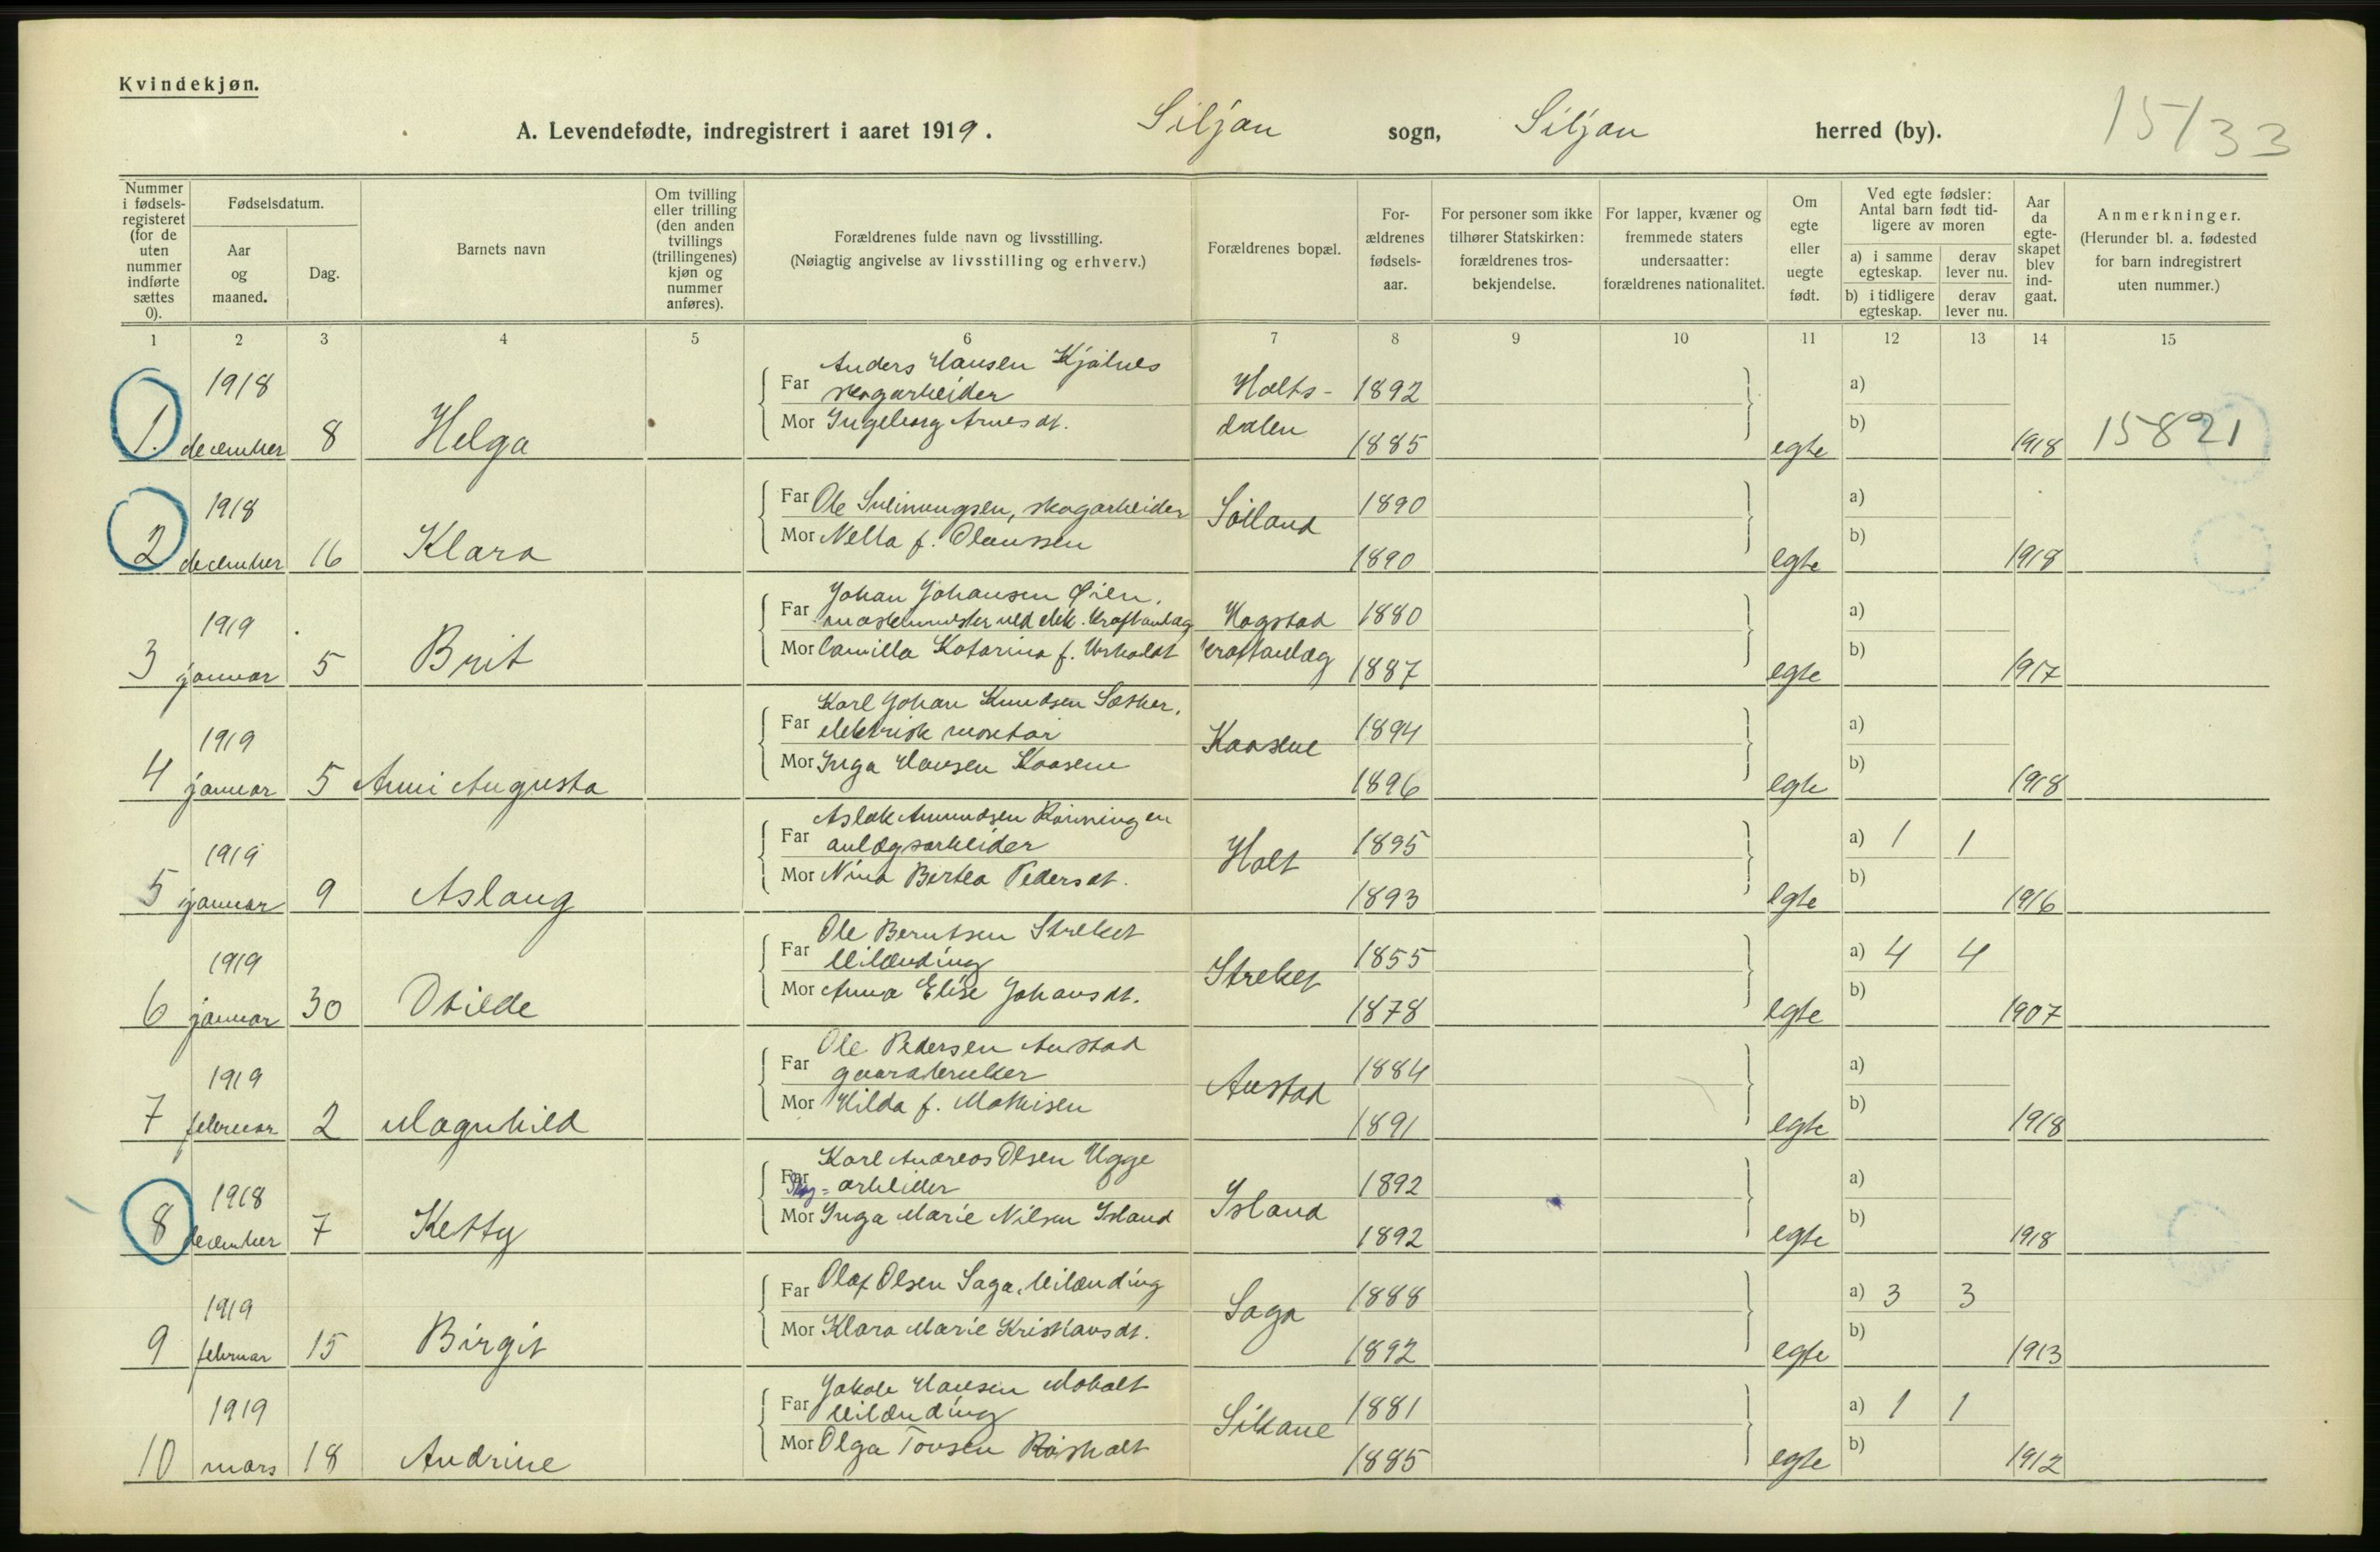 Kvindekjøn.
A. Levendefødte, indregistrert i aaret 1919. Siljan sogn, Siljan herred (by). 15/33
Nummer i fødsels-registeret (for de uten nummer indførte sættes 0).
Fødselsdatum.
Aar og maaned.
Dag.
Barnets navn
Om tvilling eller trilling (den anden tvillings (trillingenes) kjøn og nummer anføres).
Forældrenes fulde navn og livsstilling.
(Nøiagtig angivelse av livsstilling og erhverv.)
Forældrenes bopæl.
For-ældrenes fødsels-aar.
For personer som ikke tilhører Statskirken: forældrenes tros-bekjendelse.
For lapper, kvæner og fremmede staters undersaatter: forældrenes nationalitet.
Om egte eller uegte født.
Ved egte fødsler: Antal barn født tid-ligere av moren
a) i samme egteskap.
derav lever nu.
b) i tidligere egteskap.
derav lever nu.
Aar da egte-skapet blev ind-gaat.
Anmerkninger.
(Herunder bl. a. fødested for barn indregistrert uten nummer.)
1 2 3 4 5 6 7 8 9 10 11 12 13 14 15
Anders Hansen Kjølnes
1918 Far skogarbeider Holts- 1892 a)
1. december 8 Helga Mor Ingeborg Arnesdt. dalen 1885 egte b) 1918 15821
1918 Far Ole Sveinungsen, skogarbeider Søiland 1890 a)
2 december 16 Klara Mor Nella f. Olaussen 1890 egte b) 1918
Johan Johansen Øien,
1919 Far maskinmister ved elek. kraftanlæg Hogstad 1880 a)
3 januar 5 Brit Mor Camilla Katarina f. kraftanlæg 1887 egte b) 1917
Karl Johan Knudsen Sæther,
1919 Far elektrisk montør Kaasene 1894 a)
4 januar 5 Anni Augusta Mor Inga Hansen Kaasene 1896 egte b) 1918
Aslak Amundsen Rønningen
1919 Far anlægsarbeider Holt 1895 a) 1 1
5 januar 9 Aslaug Mor Nina Bertea Pedersdt. 1893 egte b) 1916
Ole Berntsen Streket
1919 Far leilænding Streket 1855 a) 4 4
6 januar 30 Otilde Mor Anna Elise Johansdt. 1878 egte b) 1907
Ole Pedersen Austad
1919 Far gaardbruker Austad 1884 a)
7 februar 2 Magnhild Mor Hilda f. Mathisen 1891 egte b) 1918
Karl Andreas Olsen Ugge
1918 Far skog=arbeider Island 1892 a)
8 december 7 Ketty Mor Inga Marie Nilsen Island 1892 egte b) 1918
1919 Far Olaf Olsen Saga, leilænding Saga 1888 a) 3 3
9 februar 15 Birgit Mor Klara Marie Kristiansdt. 1892 egte b) 1913
Jakob Hansen Moholt
1919 Far leilænding Sikane 1881 a) 1 1
10 mars 18 Andrine Mor Olga Tovsen Røsholt 1885 egte b) 1912